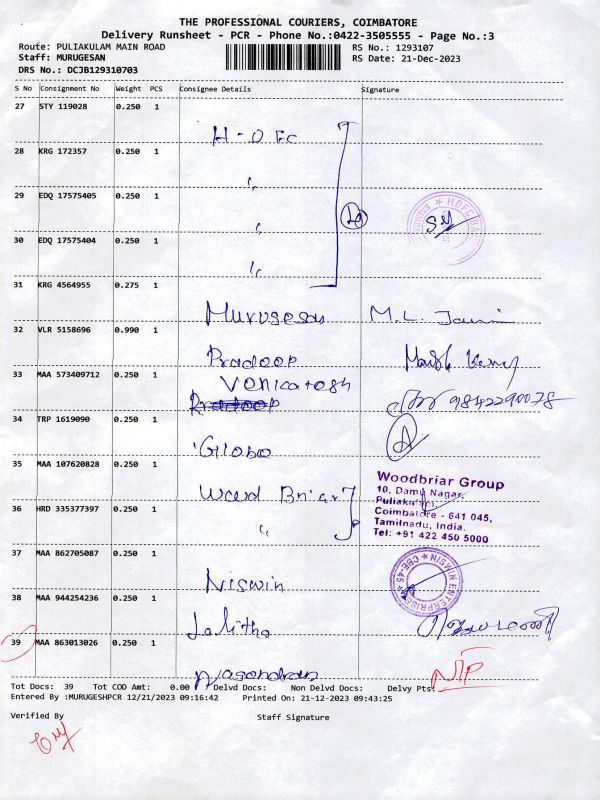 THE PROFESSIONAL COURIERS, COIMBATORE
Delivery Runsheet - PCR - Phone No.:0422-3505555 - Page No.:3
Route: PULIAKULAM MAIN ROAD RS No.: 1293107
Staff: MURUGESAN RS Date: 21-Dec-2023
DRS No.: DCJB129310703
S No Consignment No Weight PCS Consignee Details Signature
27 STY 119028 0.250 1
H-DFC
28 KRG 172357 0.250 1
"
29 EDQ 17575405 0.250 1
"
30 EDQ 17575404 0.250 1
"
31 KRG 4564955 0.275 1
Murugesan M.L.
32 VLR 5158696 0.990 1
Pradoop
33 MAA 573409712 0.250 1
Venkatesh
Pradoop 9842290078
34 TRP 1619090 0.250 1
Globo
35 MAA 107620828 0.250 1
Wood Briar
Woodbriar Group
10, Damu Nagar,
Puliakulam,
Coimbatore - 641 045,
Tamilnadu, India.
Tel: +91 422 450 5000
36 HRD 335377397 0.250 1
"
37 MAA 862705087 0.250 1
Niswin
NISWIN ENTERPRISES CBE-45
38 MAA 944254236 0.250 1
Lalitha
39 MAA 863013026 0.250 1
Nagendran NTP
Tot Docs: 39 Tot COD Amt: 0.00 Delvd Docs: Non Delvd Docs: Delvy Pts:
Entered By :MURUGESHPCR 12/21/2023 09:16:42 Printed On: 21-12-2023 09:43:25
Verified By Staff Signature